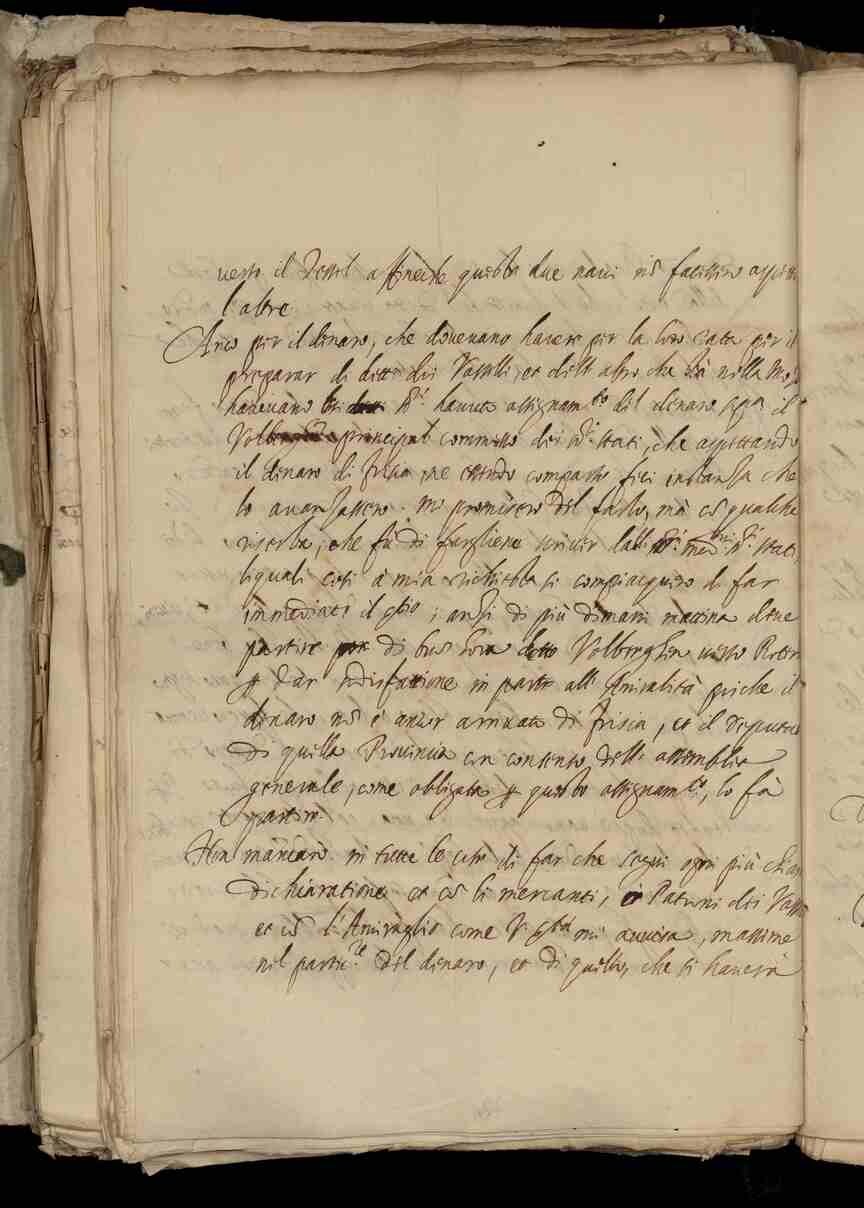 verso il Tessel affineche queste due navi nõ facessero aspettar
l'altre
Anco per il denaro, che dovevano havere per la loro rata per il
preparar di detti doi Vasselli, et dell'altro che stà nella Mosa
havevano li S.ri havuto assignam.to del denaro il
principal commesso dei S.ri stati, che aspettando
il denaro di Frisia, ne essendo comparso feci instanza che
lo avanzassero. Mi promisero del farlo, mà cõ qualche
riserba, che fù di fargliene scriver dalli med.mi S.ri stati,
liquali così à mia richiesta si compiacquero di far
immediate; anzi di più dimani mattina deve
partire di bon hora detto Volberghen verso Roter
dar sodisfattione in parte all'Amiralità perche il
denaro nõ è ancor arrivato di Frisia, et il deputato
di quella Provincia con consenso dell'assemblea
generale, come obligata questo assignam.to, lo fà
partire.
Non mancarò in tutte le cose di far che segui ogni più chiara
dichiaratione et cõ li mercanti, ò Patroni dei Vasselli
et cõ l'Amiraglio come V. S.tà mi avvisa, massime
nel partic.re del denaro, et di quello, che si haverà